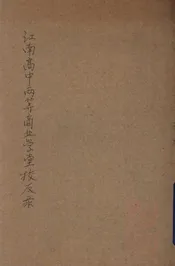 江南高中两等商业学堂校友录